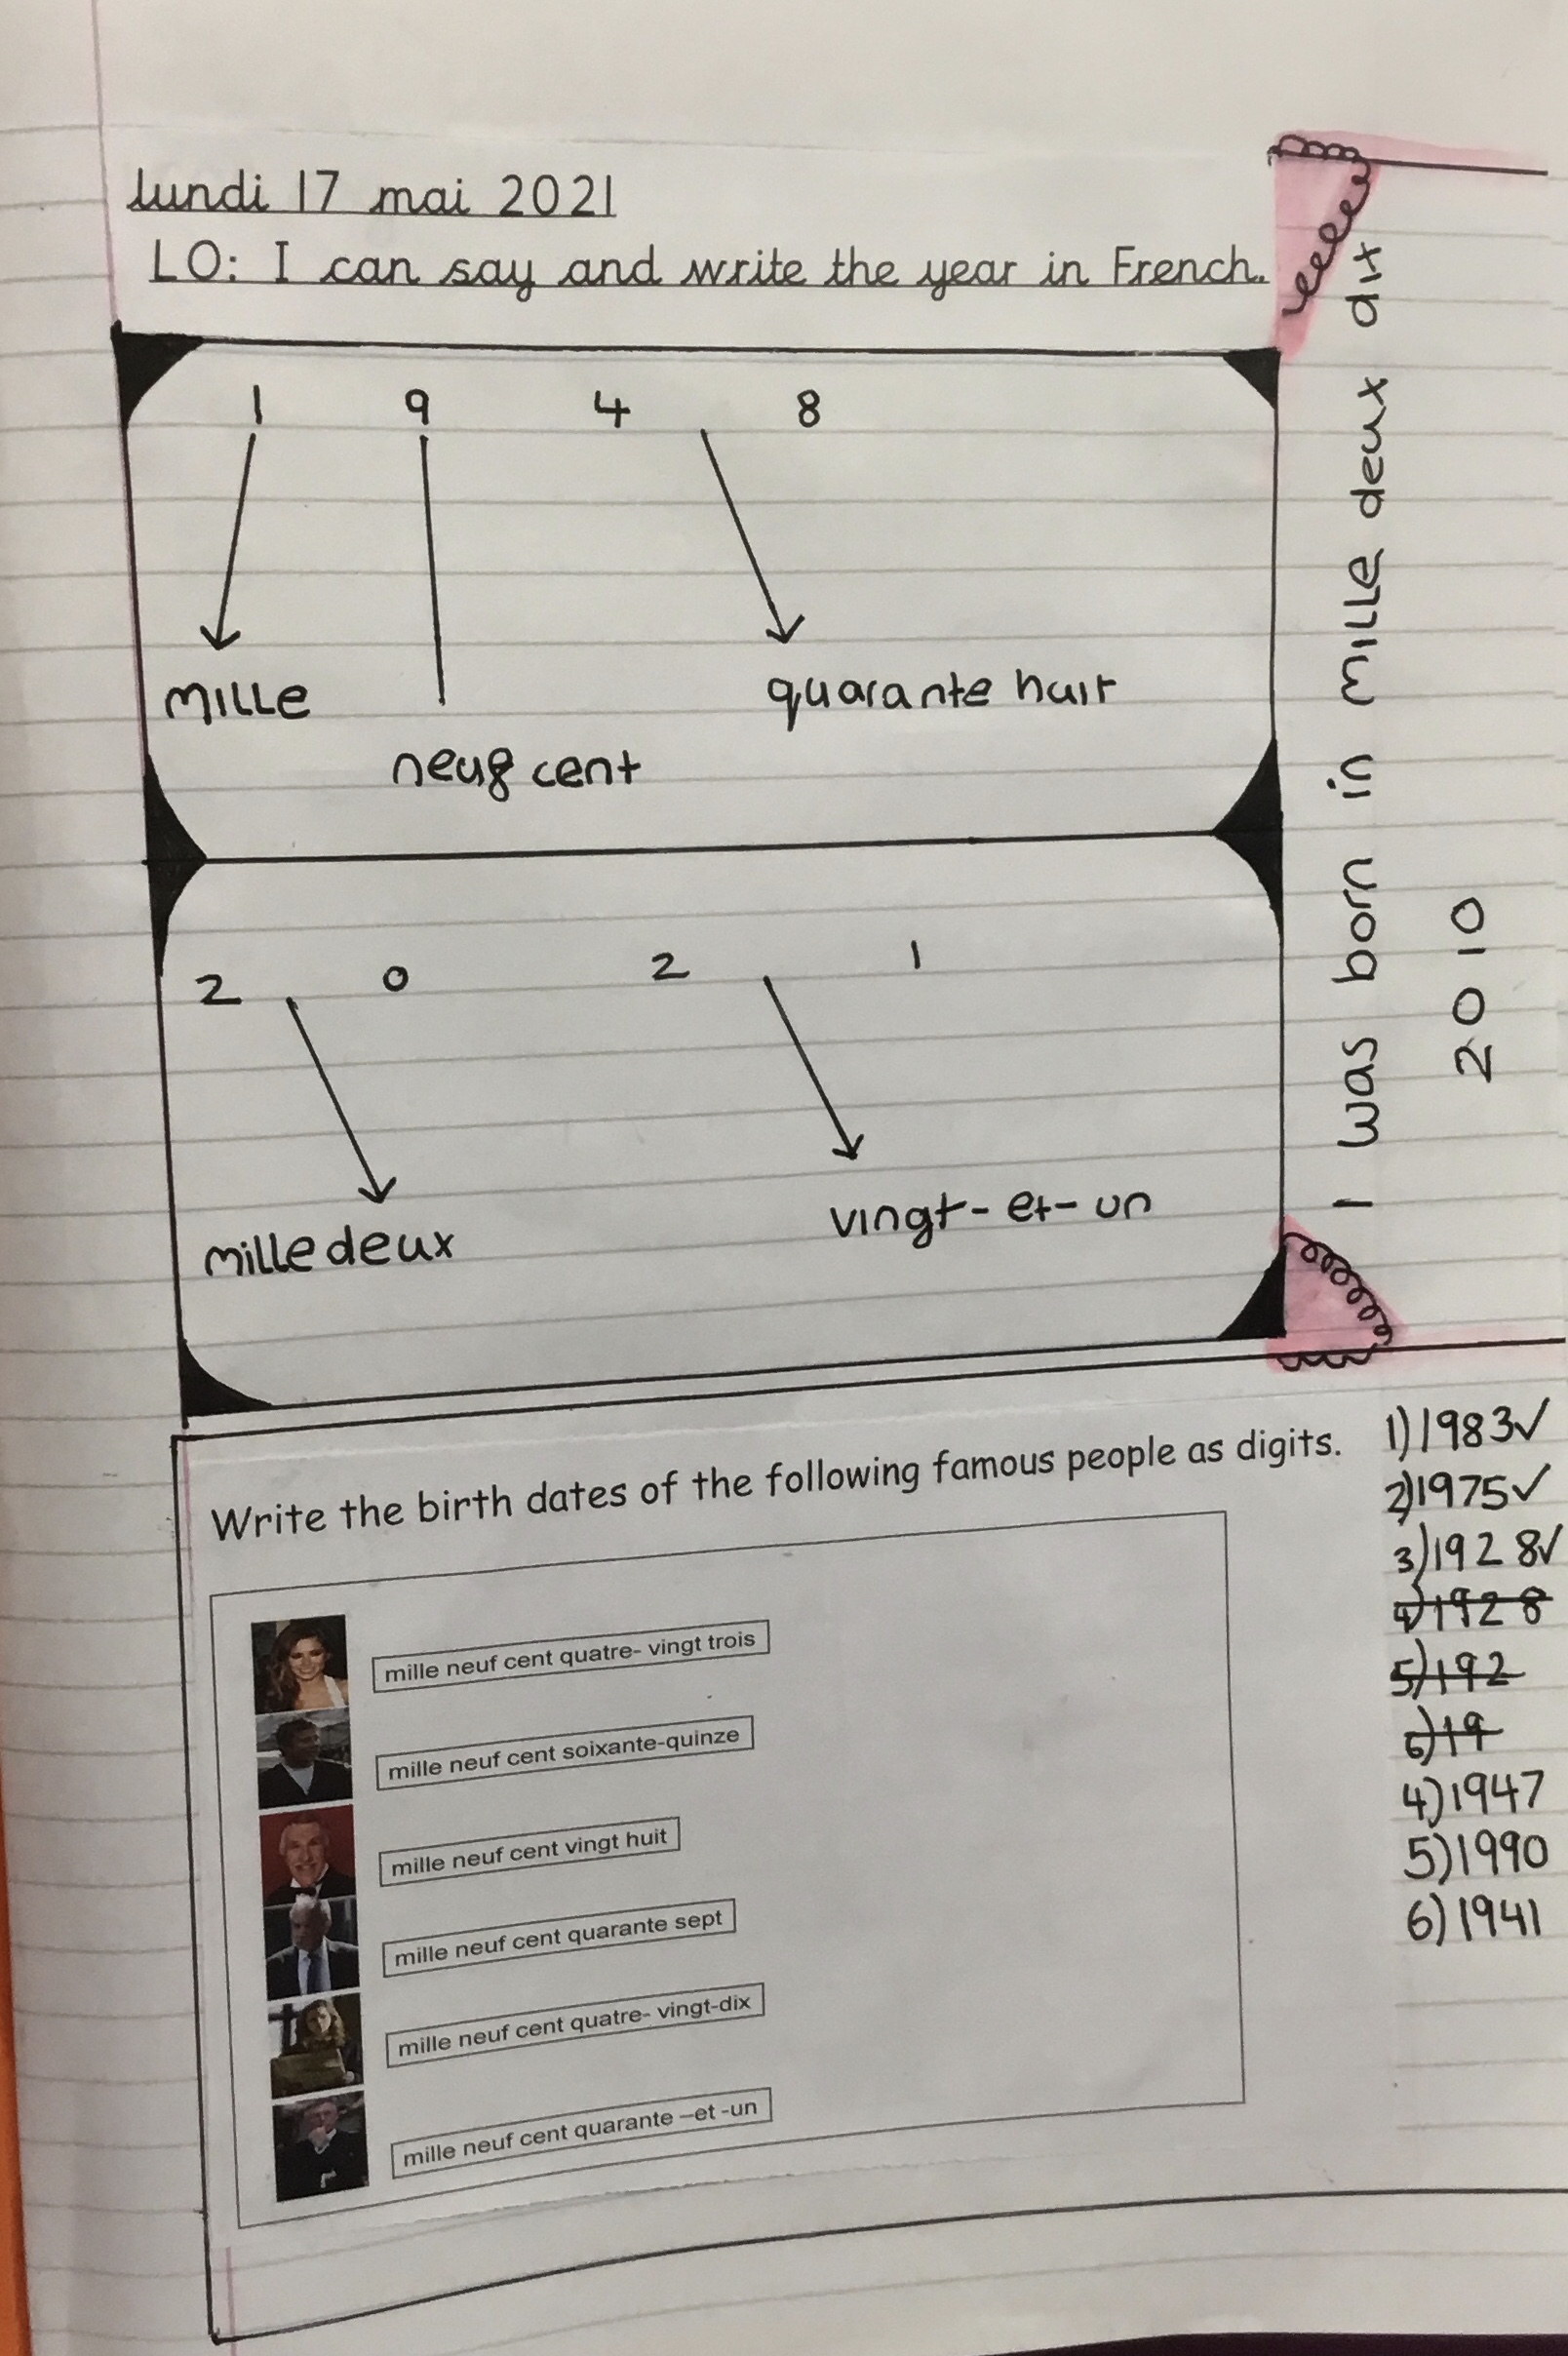 lundi 17 mai 2021
LO: I can say and write the year in French.
1 9 4 8
mille
quarante huit
neuf cent
2 0 2 1
mille deux
vingt-et-un
I was born in mille deux dix
2010
Write the birth dates of the following famous people as digits.
mille neuf cent quatre- vingt trois
mille neuf cent soixante-quinze
mille neuf cent vingt huit
mille neuf cent quarante sept
mille neuf cent quatre- vingt-dix
mille neuf cent quarante –et -un
1) 1983✓
2) 1975✓
3) 1928✓
4) 1928
5) 192
6) 19
4) 1947
5) 1990
6) 1941